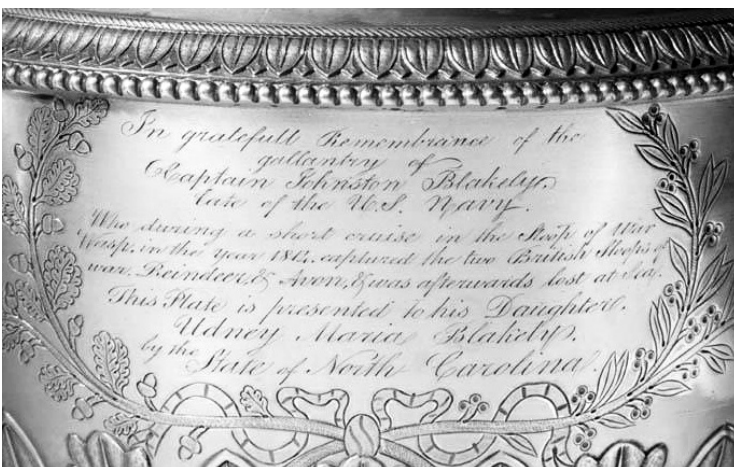 In gratefull Remembrance of the
gallantry of
Captain Johnston Blakely.
late of the U.S. Navy.
Who during a short cruise in the Sloop of War
Wasp. in the year 1814. captured the two British Sloops of
war, Reindeer, & Avon, & was afterwards lost at Sea.
This Plate is presented to his Daughter.
Udney Maria Blakely.
by the State of North Carolina.